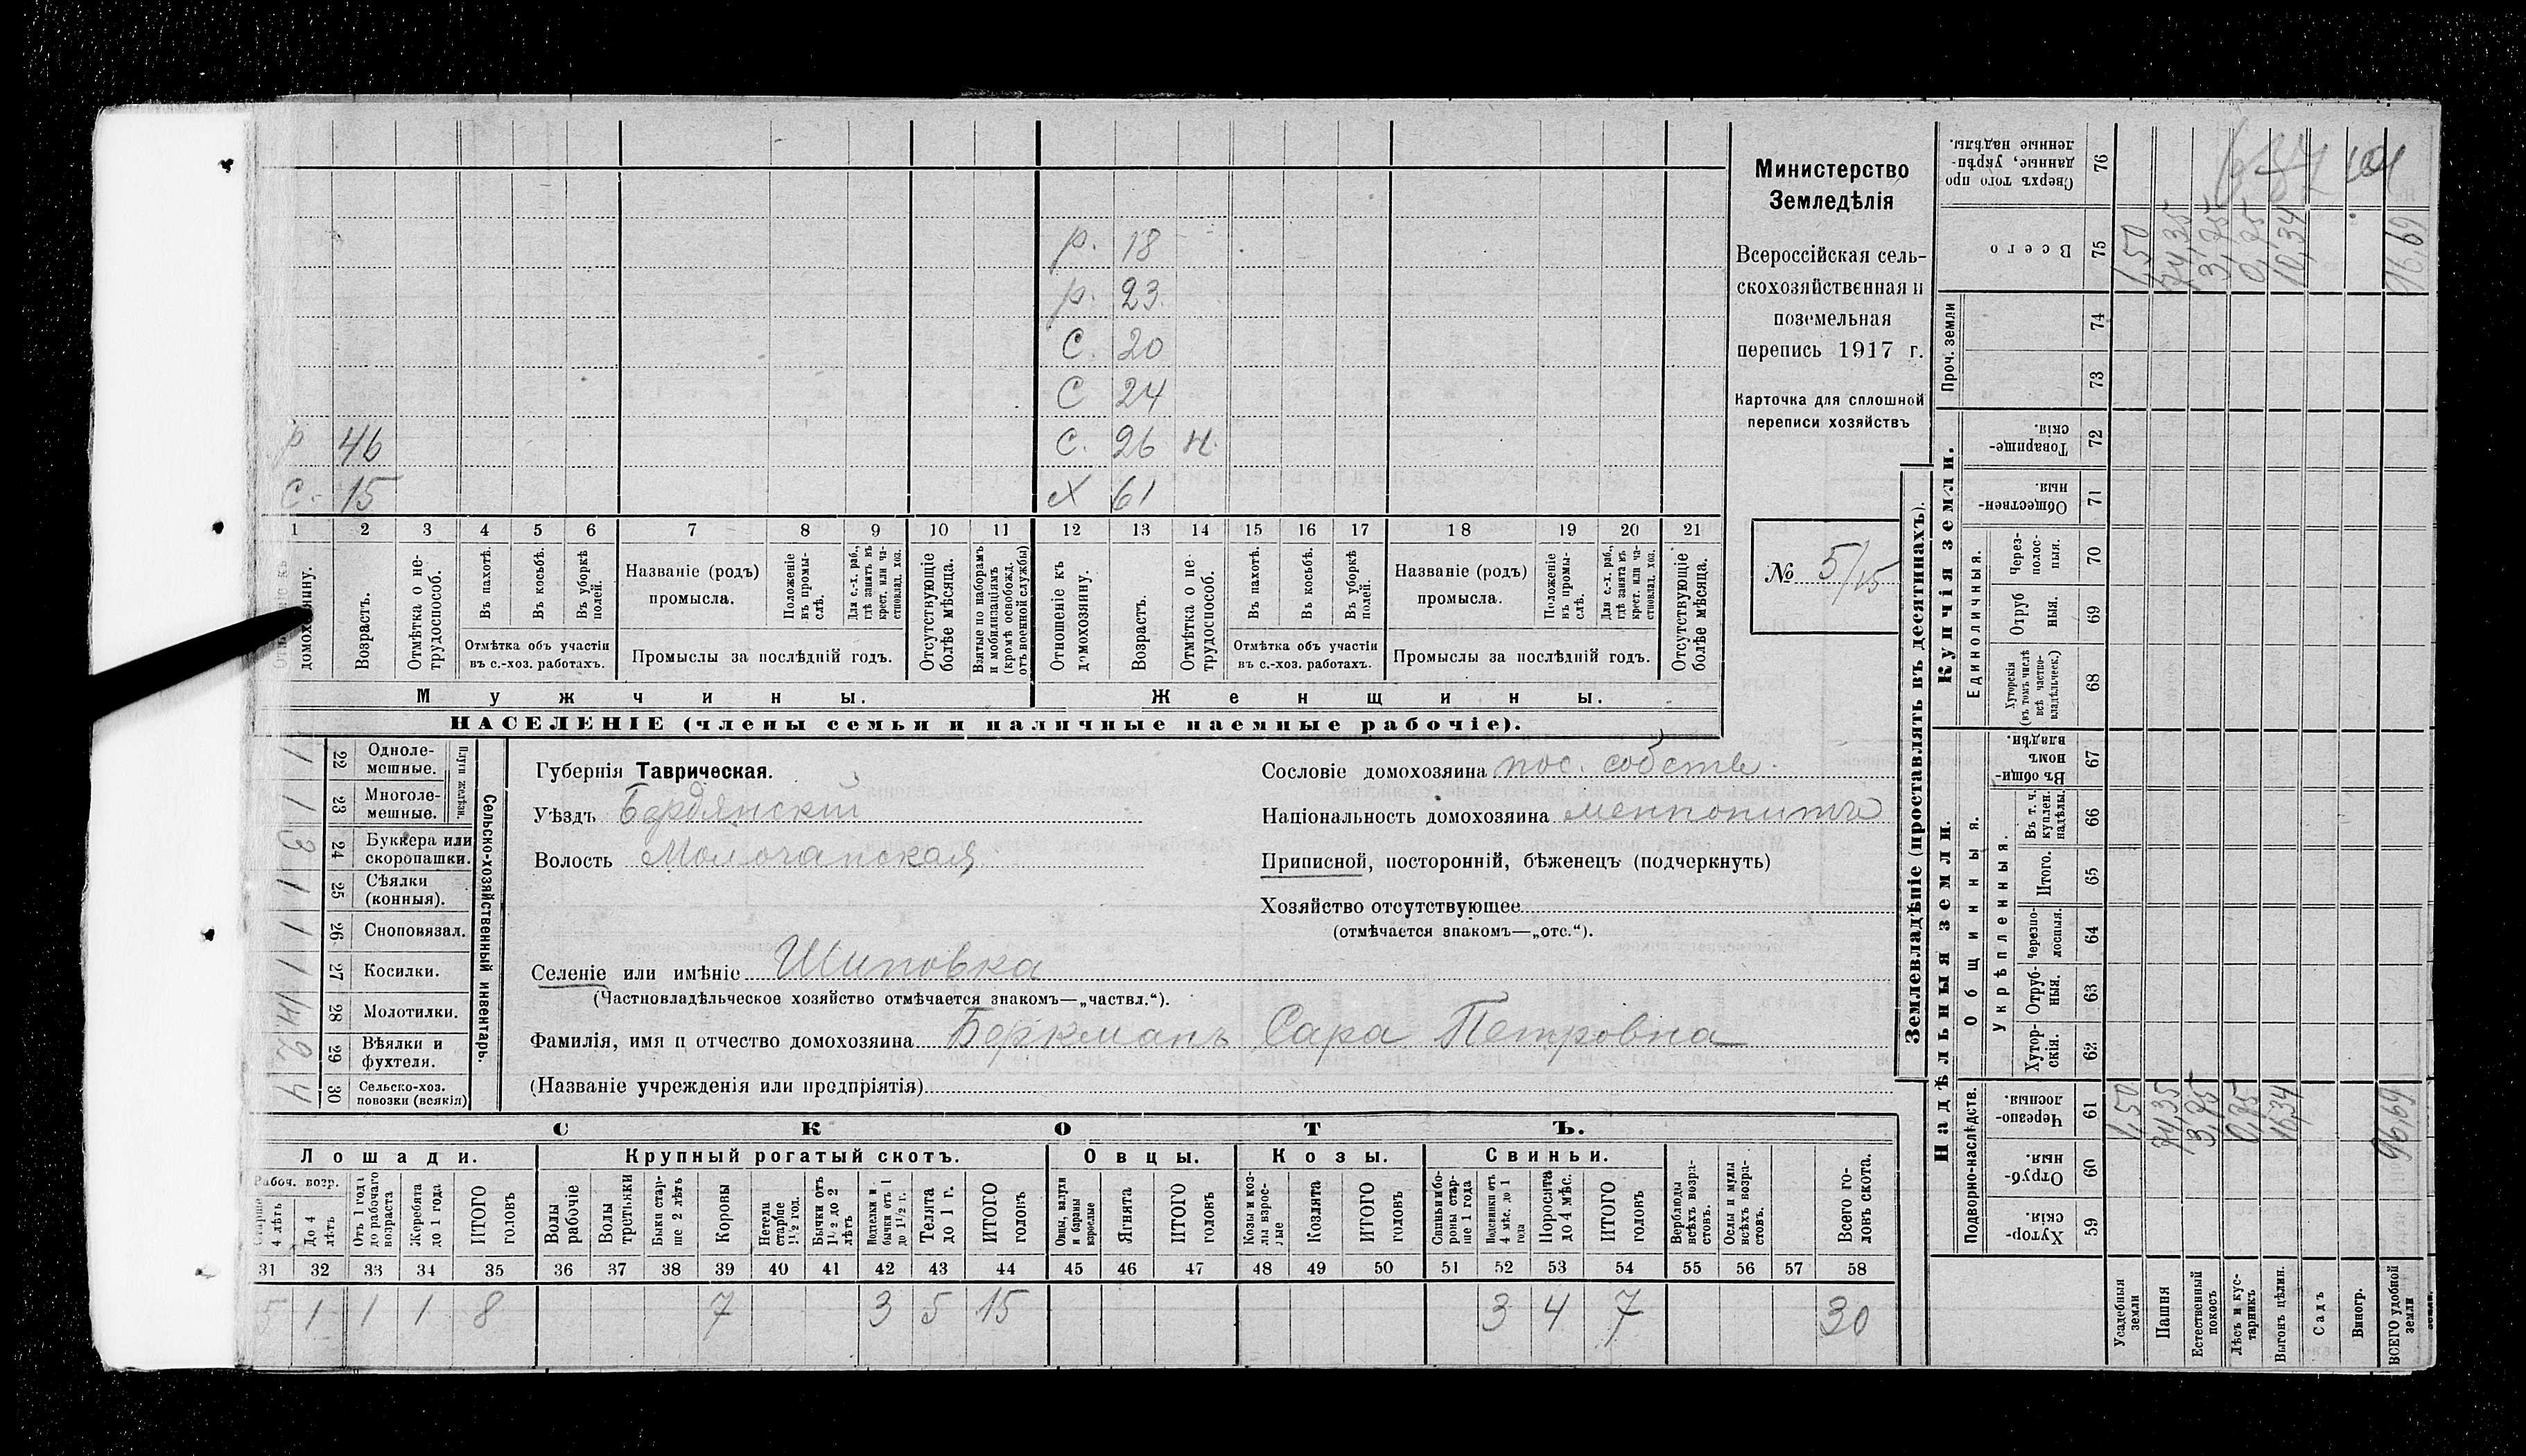 р. 18
р. 23
С. 20
С 24
р 46 С. 26 н.
С. 15 Х 61
1 2 3 4 5 6 7 8 9 10 11 12 13 14 15 16 17 18 19 20 21
домохозяину.
Возрастъ.
Отмѣтка о не-
трудоспособ.
Въ пахотѣ.
Въ косьбѣ.
Въ уборкѣ
полей.
Отмѣтка объ участіи
въ с.-хоз. работахъ.
Названіе (родъ)
промысла.
Положеніе
въ промы-
слѣ.
Для с.-х. раб.,
гдѣ занятъ въ
крест. или ча-
стновлад. хоз.
Промыслы за послѣдній годъ.
Отсутствующіе
болѣе мѣсяца.
Взятые по наборамъ
и мобилизаціямъ
(кромѣ освобожд.
отъ военной службы)
Отношеніе къ
домохозяину.
Возрастъ.
Отмѣтка о не-
трудоспособ.
Въ пахотѣ.
Въ косьбѣ.
Въ уборкѣ
полей.
Отмѣтка объ участіи
въ с.-хоз. работахъ.
Названіе (родъ)
промысла.
Положеніе
въ промы-
слѣ.
Для с.-х. раб.,
гдѣ занята въ
крест. или ча-
стновлад. хоз.
Промыслы за послѣдній годъ.
Отсутствующіе
болѣе мѣсяца.
Мужчины.
Женщины.
НАСЕЛЕНІЕ (члены семьи и наличные наемные рабочіе).
Министерство
Земледѣлія
Всероссійская сель-
скохозяйственная и
поземельная
перепись 1917 г.
Карточка для сплошной
переписи хозяйствъ
№ 5/15
Сельско-хозяйственный инвентарь.
Плуги желѣзн.
1 22 Одноле-
мешные.
1 23 Многоле-
мешные.
3 24 Буккера или
скоропашки.
1 25 Сѣялки
(конныя).
1 26 Сноповязал.
1 27 Косилки.
28 Молотилки.
2 29 Вѣялки и
фухтеля.
4 30 Сельско-хоз.
повозки (всякія)
Губернія Таврическая.
Уѣздъ Бердянскій
Волость Молочанская
Сословіе домохозяина пос. собств.
Національность домохозяина меннонитъ
Приписной, посторонній, бѣженецъ (подчеркнуть)
Хозяйство отсутствующее
(отмѣчается знакомъ—„отс.“).
Селеніе или имѣніе Шиповка
(Частновладѣльческое хозяйство отмѣчается знакомъ—„частвл.“).
Фамилія, имя и отчество домохозяина Беркманъ Сара Петровна
(Названіе учрежденія или предпріятія)
СКОТЪ.
Лошади. Крупный рогатый скотъ. Овцы. Козы. Свиньи.
Рабоч. возр.
Старше
4 лѣтъ
До 4
лѣтъ
Отъ 1 года
до рабочаго
возраста
Жеребята
до 1 года
ИТОГО
головъ
Волы
рабочіе
Волы
третьяки
Быки стар-
ше 2 лѣтъ
Коровы
Нетели
старше
1½ год.
Бычки отъ
1½ до 2
лѣтъ
Подтелки и
бычки отъ 1
до 1½ г.
Телята
до 1 г.
ИТОГО
головъ
Овцы, валухи
и бараны
взрослые
Ягнята
ИТОГО
головъ
Козы и коз-
лы взрос-
лые
Козлята
ИТОГО
головъ
Свиньи и бо-
роны стар-
ше 1 года
Подсвинки отъ
4 мѣс. до 1
года
Поросята
до 4 мѣс.
ИТОГО
головъ
Верблюды
всѣхъ возра-
стовъ.
Ослы и мулы
всѣхъ возра-
стовъ.
Всего го-
ловъ скота.
31 32 33 34 35 36 37 38 39 40 41 42 43 44 45 46 47 48 49 50 51 52 53 54 55 56 57 58
5 1 1 1 8 7 3 5 15 3 4 7 30
Землевладѣніе (проставлять въ десятинахъ).
Надѣльныя земли.
Купчія земли.
Проч. земли
Подворно-наслѣдств.
Общинныя.
Укрѣпленныя.
Единоличныя.
Сверхъ того про
данные, укрѣп-
ленные надѣлы.
76
Всего
75
74
73
Товарище-
скія.
72
Обществен-
ныя
71
Через-
полос-
ныя.
70
Отруб
ныя.
69
Хуторскія
(въ томъ числѣ
всѣ частно-
владѣльческ.)
68
Въ общин-
номъ
владѣн.
67
Въ т. ч.
куплен.
надѣлы.
66
Итого.
65
Черезпо-
лосныя.
64
Отруб-
ныя.
63
Хутор-
скія.
62
Черезпо-
лосныя.
61
Отруб-
ныя.
60
Хутор-
скія.
59
Усадебныя
земли
1,50 1,50
Пашня
74,35 74,35
Естественный
покосъ
3,25 3,25
Лѣсъ и кус-
тарникъ
0,25 0,25
Выгонъ цѣлин.
Садъ
Виногр.
ВСЕГО удобной
земли
96,69 96,69